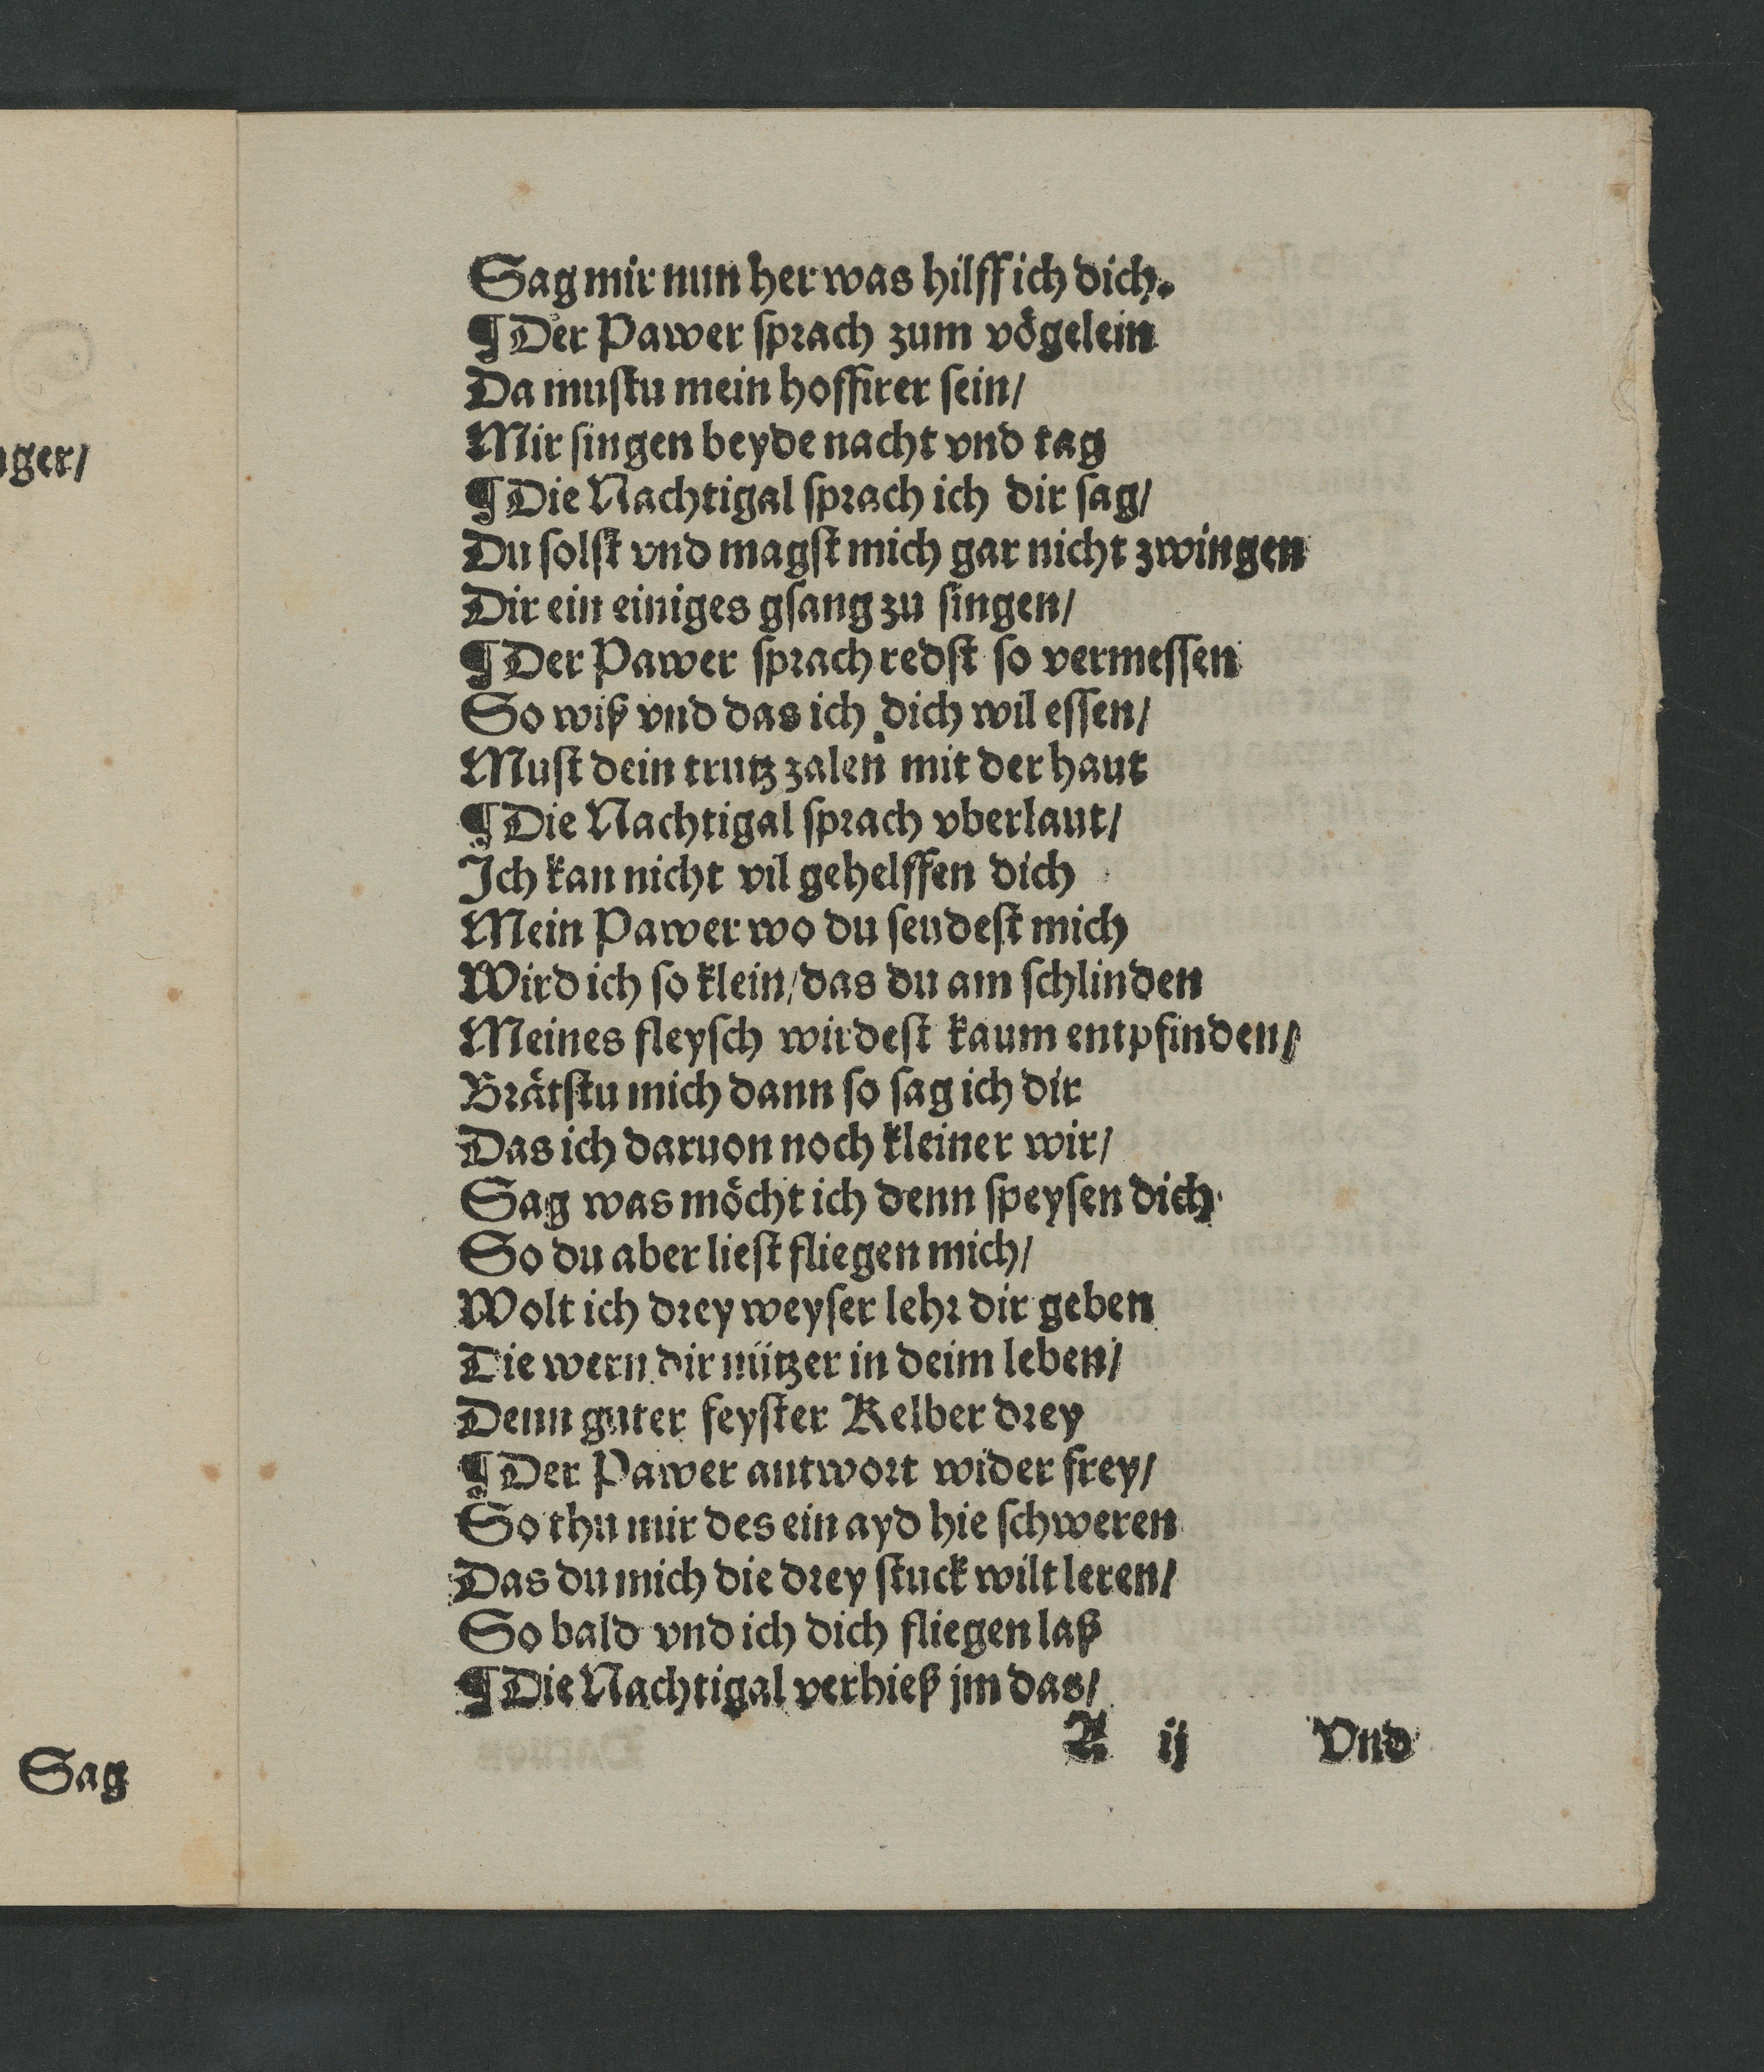 nger/
Sag
Sag mir nun her was hilff ich dich.
¶ Der Pawer sprach zum vögelein
Da mustu mein hoffirer sein/
Mir singen beyde nacht vnd tag
¶ Die Nachtigal sprach ich dir sag/
Du solst vnd magst mich gar nicht zwingen
Dir ein einiges gsang zu singen/
¶ Der Pawer sprach redst so vermessen
So wiß vnd das ich dich wil essen/
Must dein trutz zalen mit der haut
¶ Die Nachtigal sprach vberlaut/
Ich kan nicht vil gehelffen dich
Mein Pawer wo du seudest mich
Wird ich so klein/das du am schlinden
Meines fleysch wirdest kaum entpfinden/
Brätstu mich dann so sag ich dir
Das ich daruon noch kleiner wir/
Sag was möcht ich denn speysen dich
So du aber liest fliegen mich/
Wolt ich drey weyser lehr dir geben
Die wern dir nützer in deim leben/
Denn guter feyster Kelber drey
¶ Der Pawer antwort wider frey/
So thu mir des ein ayd hie schweren
Das du mich die drey stuck wilt leren/
So bald vnd ich dich fliegen laß
¶ Die Nachtigal verhieß jm das/
A ij Vnd